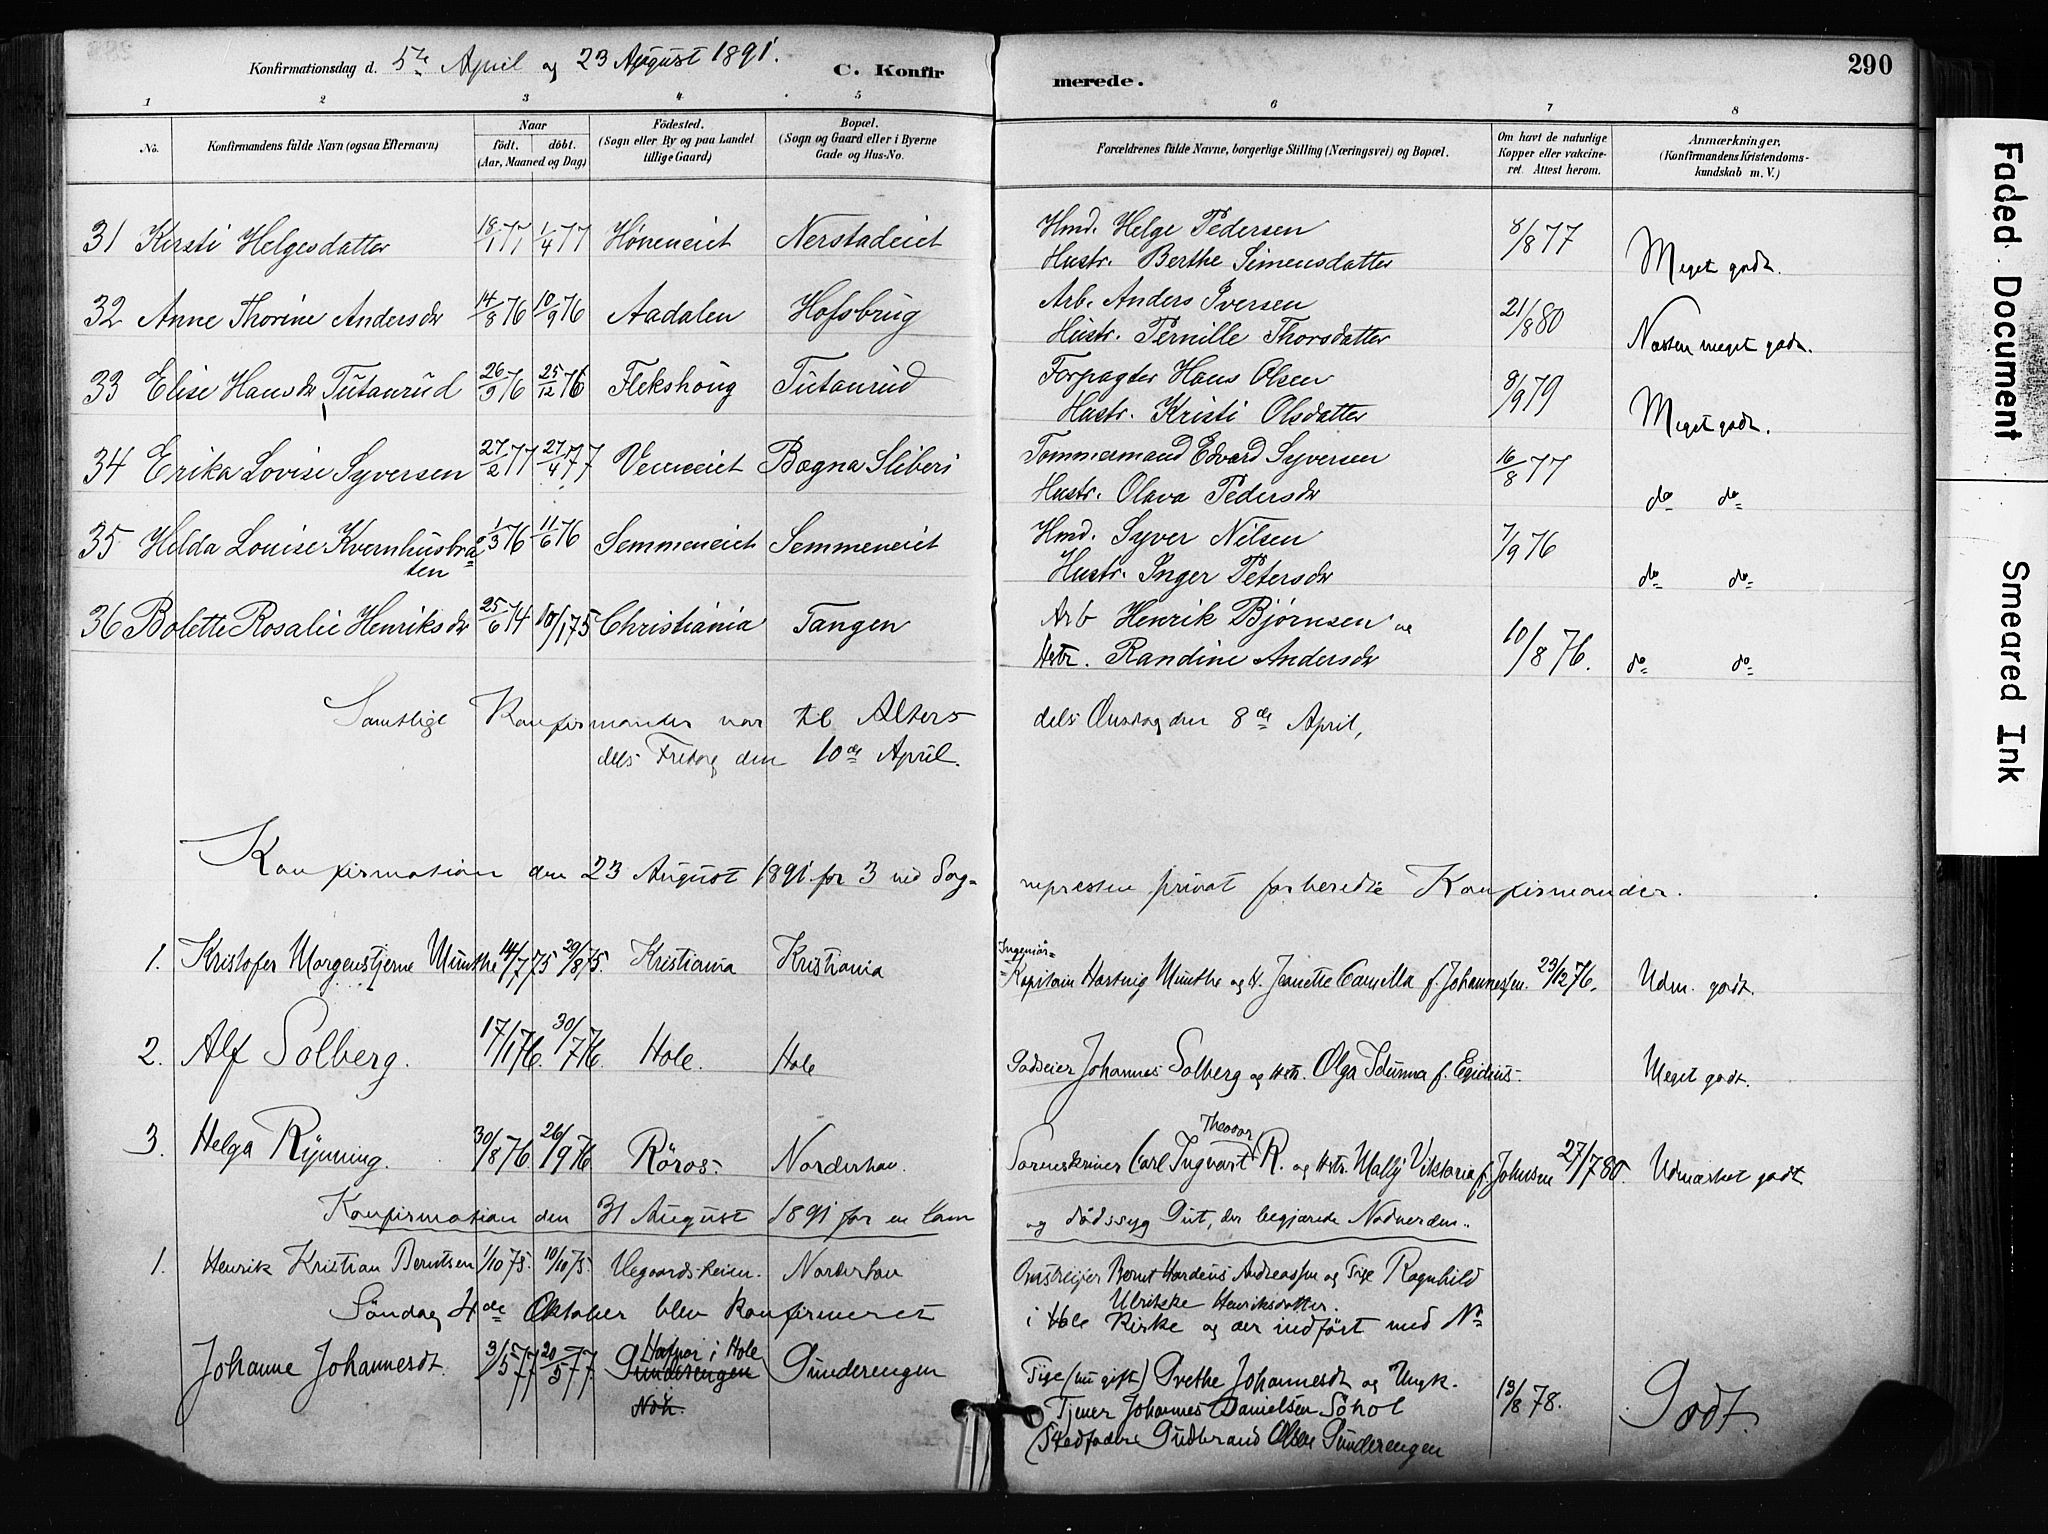 Konfirmationsdag d. 5te April og 23 August 1891. C. Konfir merede. 290
1 2 3 4 5 6 7 8
No. Konfirmandens fulde Navn (ogsaa Efternavn) Naar födt. döbt. (Aar, Maaned og Dag) Födested. (Sogn eller By og paa Landet tillige Gaard) Bopæl. (Sogn og Gaard eller i Byerne Gade og Hus-No. Forældrenes fulde Navne, borgerlige Stilling (Næringsvei) og Bopæl. Om havt de naturlige Kopper eller vakcineret. Attest herom. Anmærkninger. (Konfirmandens Kristendomskundskab m. V.)
31 Kirsti Helgesdatter 18/1 77 1/4 77 Høneneiet Nerstadeiet Hmd. Helge Pedersen 8/8 77
Hustr. Berthe Simensdatter Meget godt.
32 Anne Thorine Andersdr 14/8 76 10/9 76 Aadalen Hofsbrug Arb. Anders Iversen 21/8 80
Hustr. Pernille Thorsdatter Næsten meget godt.
33 Elise Hansdr Tutanrud 26/9 76 25/12 76 Flekshoug Tutanrud Forpagter Hans Olsen 8/9 79
Hustr. Kristi Olsdatter Meget godt.
34 Erika Lovise Syversen 27/2 77 27/4 77 Venneeiet Bægna Sliberi Tømmermand Edvard Syversen 16/8 77
Hustr. Olava Pedersdr do do
35 Helda Louise Kvernhusbra= 1/3 76 11/6 76 Semmeneiet Semmeneiet Hmd. Syver Nilsen 7/9 76
ten Hustr. Inger Petersdr do do
36 Bolette Rosalie Henriksdr 25/6 74 10/1 75 Christiania Tangen Arb Henrik Bjørnsen og
Hstr. Randine Andersdr 10/8 76. do do
Samtlige Konfirmander var til Alters dels Onsdag den 8de April,
dels Fredag den 10de April.
Konfirmation den 23 August 1891 for 3 ved Sog= nepresten privat forberedte Konfirmander.
1. Kristofer Morgenstjerne Munthe 14/7 75 29/8 75. Kristiania Kristiania Ingeniør= Kapitain Hartvig Munthe og H. Jeanette Camilla f. Johannessen. 23/12 76. Udm. godt.
2. Alf Solberg. 17/1 76. 30/7 76. Hole. Hole Godseier Johannes Solberg og Hstr. Olga Idunna f. Egidius. Meget godt.
3. Helga Rynning. 30/8 76. 26/9 76 Röros. Norderhov. Sorenskriver Carl Ingvart Theodor R. og Hstr. Mally Viktoria f. Johnsen 27/7 80. Udmærket godt
Konfirmation den 31 August 1891 for en lam og dödssyg Gut, der begjærede Nadverden.
1. Henrik Kristian Berntsen 1/10 75. 10/10 75. Vegaardsheien. Norderhov Omstreifer Bernt Andreassen og Pige Ragnhild
Ulrikke Henriksdatter.
Söndag 4de Oktober blev konfirmeret i Hole Kirke og der indført med No
Johanne Johannesdt. 3/5 77 20/5 77. Gunderengen Nöh. Hafnor i Hole Gunderengen Pige (nu gift) Grethe Johannesdt og Ungk. 13/8 78. Godt.
Tjener Johannes Danielsen Söhol
(Stedfader Gudbrand Olsen Gunderengen
Faded Document
Smeared Ink